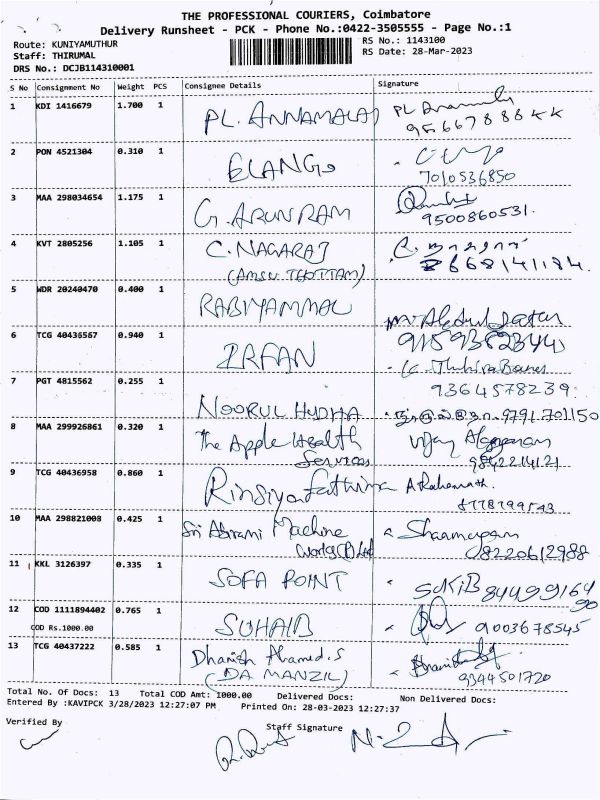 THE PROFESSIONAL COURIERS, Coimbatore
Delivery Runsheet - PCK - Phone No.:0422-3505555 - Page No.:1
Route: KUNIYAMUTHUR
RS No.: 1143100
Staff: THIRUMAL
RS Date: 28-Mar-2023
DRS No.: DCJB114310001
S No Consignment No Weight PCS Consignee Details Signature
1 KDI 1416679 1.700 1 PL. ANNAMALAI PL
2 PON 4521304 0.310 1 ELANGo
7010536850
3 MAA 298034654 1.175 1 G. ARUNRAM
9500860531.
4 KVT 2805256 1.105 1 C. NAGARAJ
(AMSU THOTTAM)
5 WDR 20240470 0.400 1 RABIYAMMAL
6 TCG 40436567 0.940 1 IRFAN
7 PGT 4815562 0.255 1 NOORUL HUDHA
9364578239
9791701150
8 MAA 299926861 0.320 1 The Apple Health
Services
9842214121
9 TCG 40436958 0.860 1 Rinsiya fathima
10 MAA 298821008 0.425 1 Sri Abirami Machine
Works (P) Ltd
08220612988
11 KKL 3126397 0.335 1 SOFA POINT SOKIB 8449916490
12 COD 1111894402 0.765 1 SUHAIB 9003678545
COD Rs.1000.00
13 TCG 40437222 0.585 1 Dhanish Ahamed.S
(DA MANZIL) 9344501720
Total No. Of Docs: 13 Total COD Amt: 1000.00 Delivered Docs: Non Delivered Docs:
Entered By :KAVIPCK 3/28/2023 12:27:07 PM Printed On: 28-03-2023 12:27:37
Verified By
Staff Signature